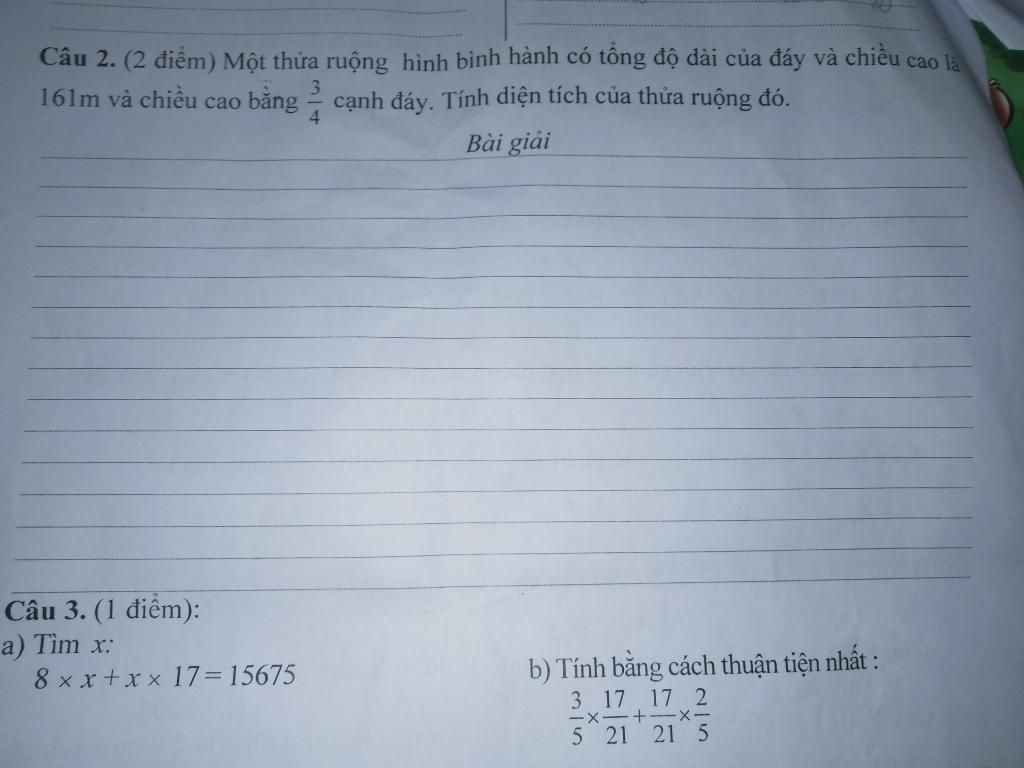 Câu 2. (2 điểm) Một thửa ruộng hình bình hành có tổng độ dài của đáy và chiều cao là
161m và chiều cao bằng 3/4 cạnh đáy. Tính diện tích của thửa ruộng đó.
Bài giải
Câu 3. (1 điểm):
a) Tìm x:
8 × x + x × 17 = 15675
b) Tính bằng cách thuận tiện nhất :
3/5 × 17/21 + 17/21 × 2/5